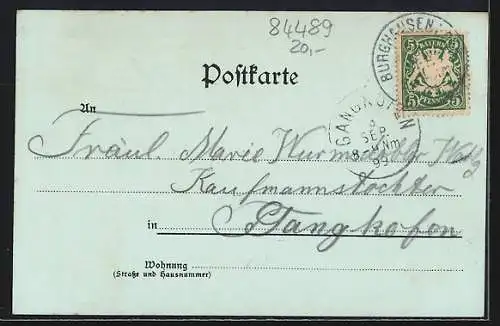 84489
20,-
BURGHAUSEN
BAYERN
5 5
5 PFENNIG 5
Postkarte
GANGKOFEN
SEP.
8-9 Nm
99
An
Fräul. Marie
Kaufmannstochter
in Gangkofen
Wohnung
(Straße und Hausnummer)